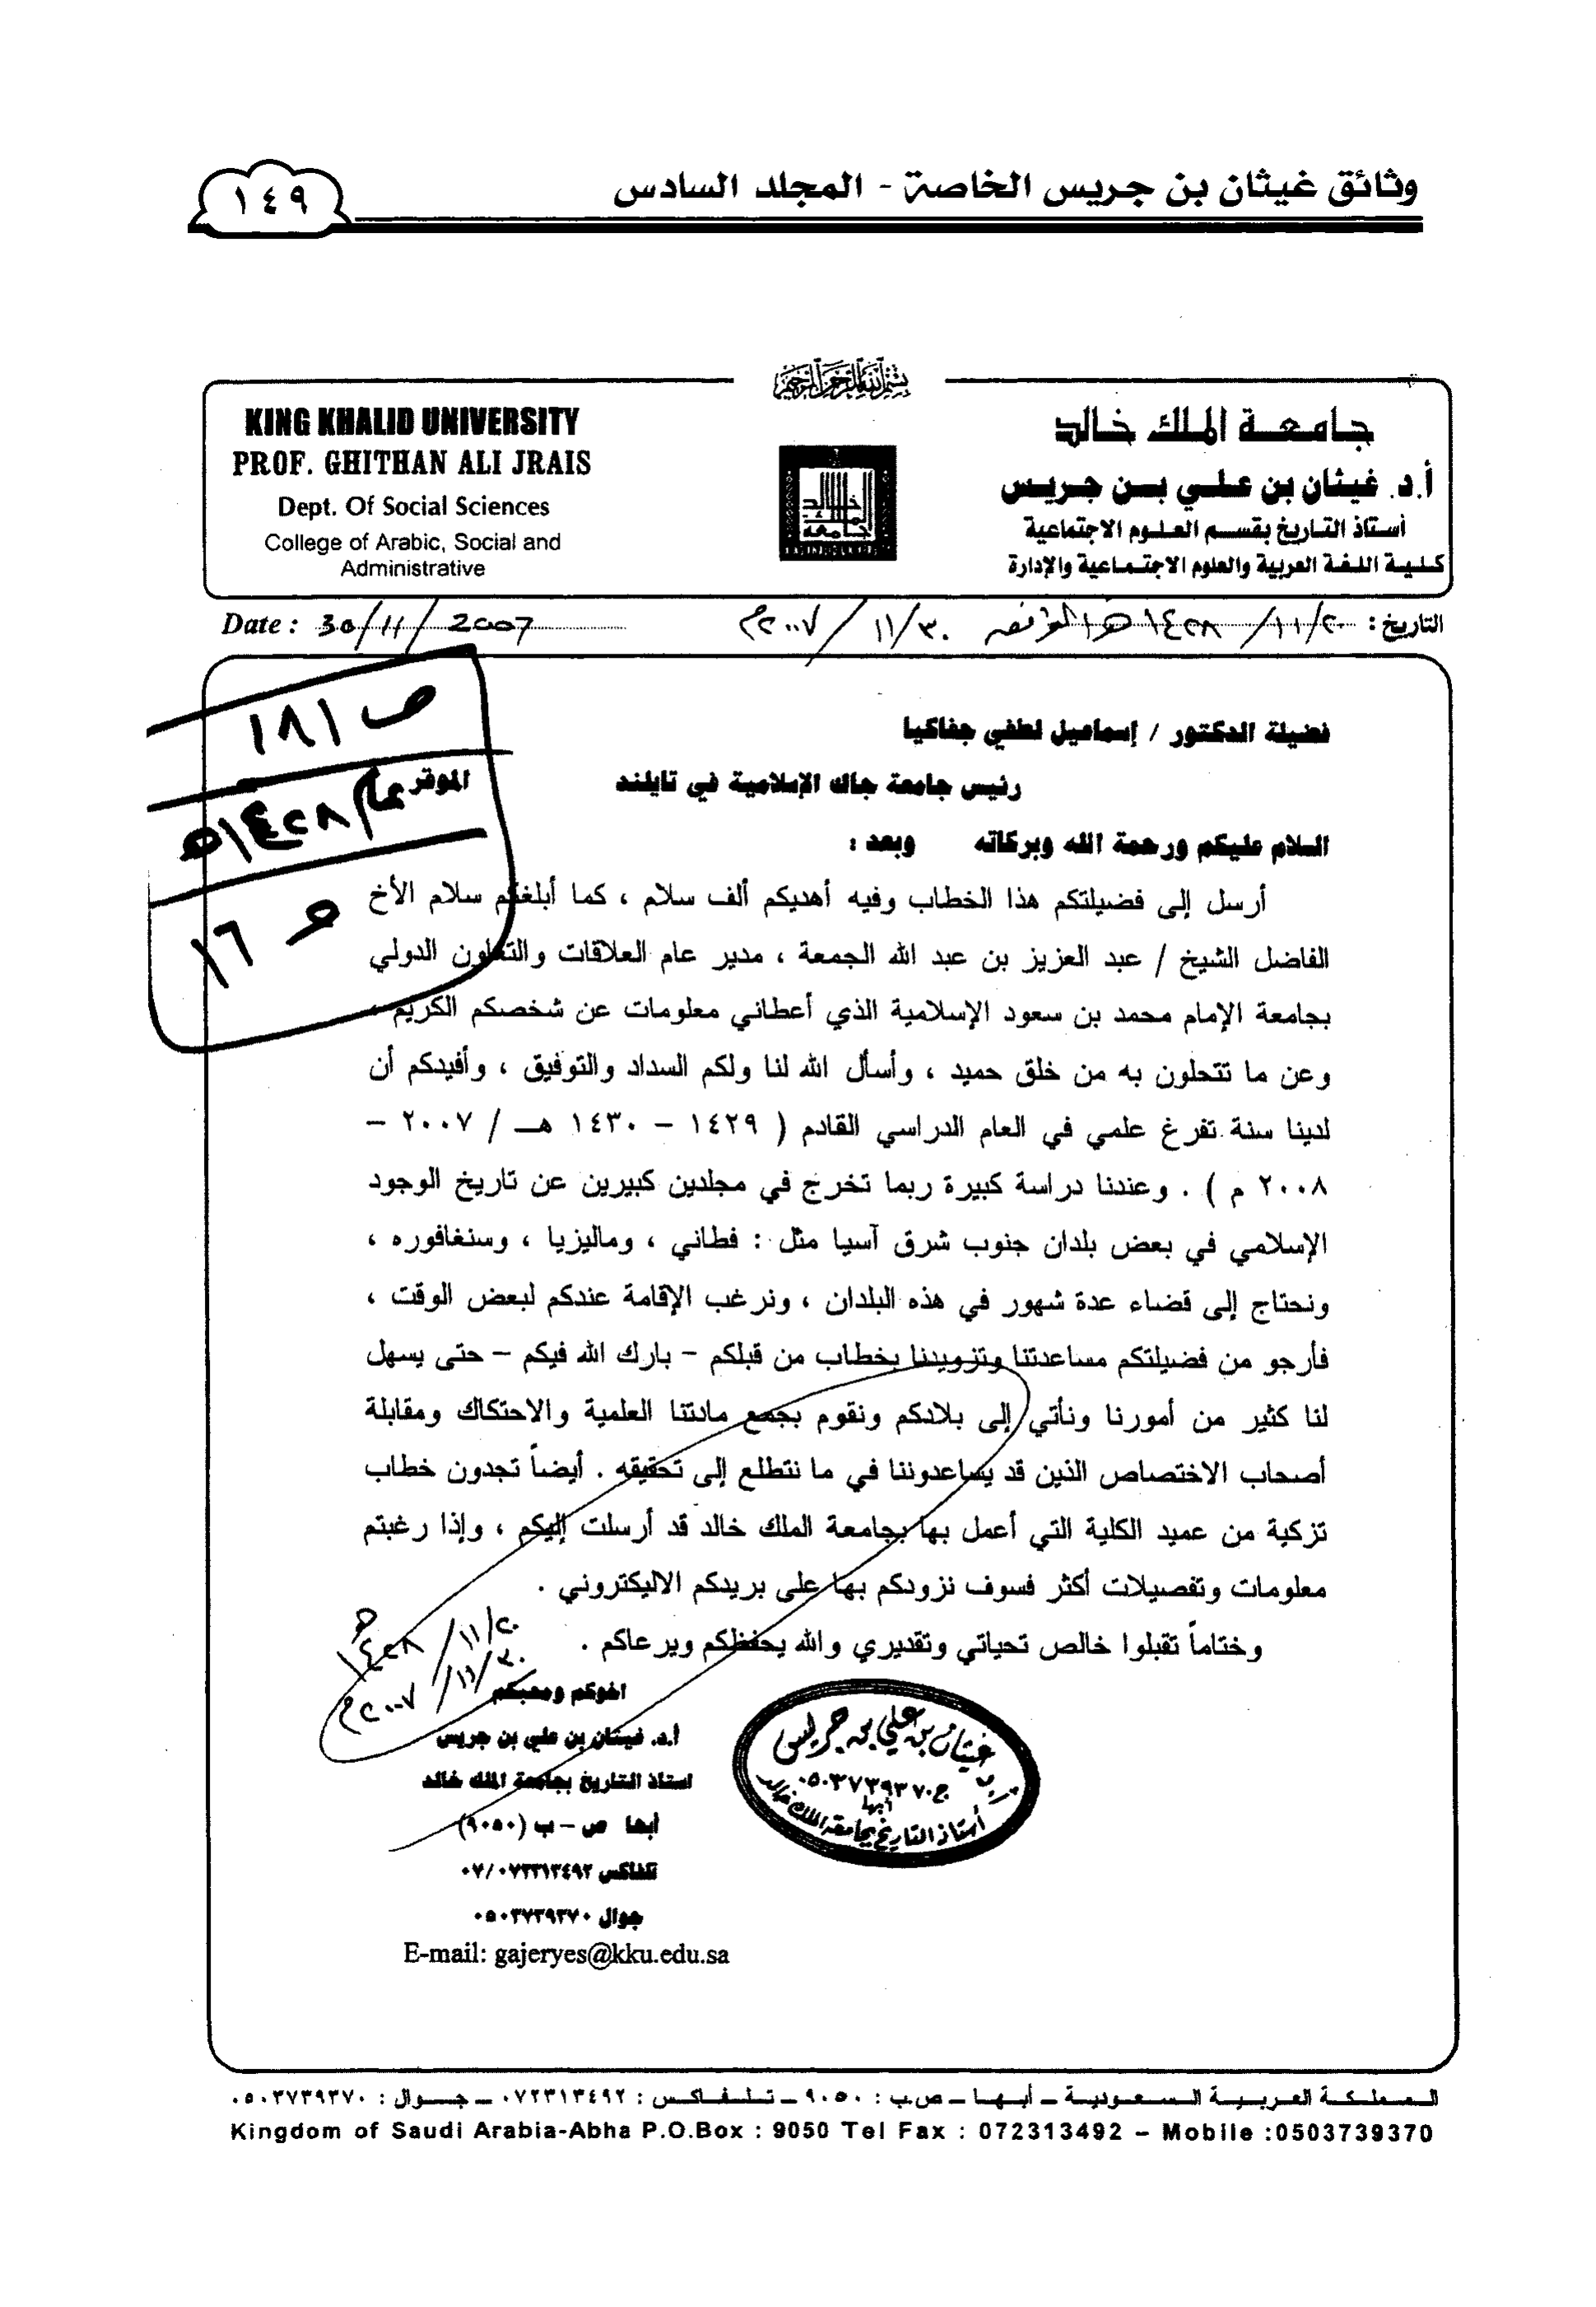 وثائق غيثان بن جريس الخاصة - المجلد السادس
١٤٩
بسم الله الرحمن الرحيم
جامعة الملك خالد
أ.د. غيثان بن علي بن جريس
أستاذ التاريخ بقسم العلوم الاجتماعية
كلية اللغة العربية والعلوم الاجتماعية والإدارة
KING KHALID UNIVERSITY
PROF. GHITHAN ALI JRAIS
Dept. Of Social Sciences
College of Arabic, Social and
Administrative
التاريخ : ٢٠/١١/١٤٢٨هـ الموافق ٣٠/١١/٢٠٠٧م
Date : 30/11/2007
ص ١٨١
١٤٢٨هـ
١٦
فضيلة الدكتور / إسماعيل لطفي جفاكيا
رئيس جامعة جالا الإسلامية في تايلند الموقر
السلام عليكم ورحمة الله وبركاته وبعد :
أرسل إلى فضيلتكم هذا الخطاب وفيه أهديكم ألف سلام ، كما أبلغكم سلام الأخ
الفاضل الشيخ / عبد العزيز بن عبد الله الجمعة ، مدير عام العلاقات والتعاون الدولي
بجامعة الإمام محمد بن سعود الإسلامية الذي أعطاني معلومات عن شخصكم الكريم ،
وعن ما تتحلون به من خلق حميد ، وأسأل الله لنا ولكم السداد والتوفيق ، وأفيدكم أن
لدينا سنة تفرغ علمي في العام الدراسي القادم ( ١٤٢٩ – ١٤٣٠ هـ / ٢٠٠٧ –
٢٠٠٨ م ) . وعندنا دراسة كبيرة ربما تخرج في مجلدين كبيرين عن تاريخ الوجود
الإسلامي في بعض بلدان جنوب شرق آسيا مثل : فطاني ، وماليزيا ، وسنغافوره ،
ونحتاج إلى قضاء عدة شهور في هذه البلدان ، ونرغب الإقامة عندكم لبعض الوقت ،
فأرجو من فضيلتكم مساعدتنا وتزويدنا بخطاب من قبلكم – بارك الله فيكم – حتى يسهل
لنا كثير من أمورنا ونأتي إلى بلادكم ونقوم بجمع مادتنا العلمية والاحتكاك ومقابلة
أصحاب الاختصاص الذين قد يساعدوننا في ما نتطلع إلى تحقيقه . أيضاً تجدون خطاب
تزكية من عميد الكلية التي أعمل بها بجامعة الملك خالد قد أرسلت إليكم ، وإذا رغبتم
معلومات وتفصيلات أكثر فسوف نزودكم بها على بريدكم الاليكتروني .
وختاماً تقبلوا خالص تحياتي وتقديري والله يحفظكم ويرعاكم .
٢٠/١١/١٤٢٨هـ
٣٠/١١/٢٠٠٧م
اخوكم ومحبكم
أ.د. غيثان بن علي بن جريس
استاذ التاريخ بجامعة الملك خالد
أبها ص – ب (٩٠٥٠)
تلفاكس ٠٧/٠٧٢٣١٣٤٩٢
جوال ٠٥٠٣٧٣٩٣٧٠
E-mail: gajeryes@kku.edu.sa
غيثان بن علي بن جريس
ج ٠٥٠٣٧٣٩٣٧٠
أبها
أستاذ التاريخ بجامعة الملك خالد
المملكة العربية السعودية – أبها – ص.ب : ٩٠٥٠ – تلفاكس : ٠٧٢٣١٣٤٩٢ – جوال : ٠٥٠٣٧٣٩٣٧٠
Kingdom of Saudi Arabia-Abha P.O.Box : 9050 Tel Fax : 072313492 – Mobile :0503739370